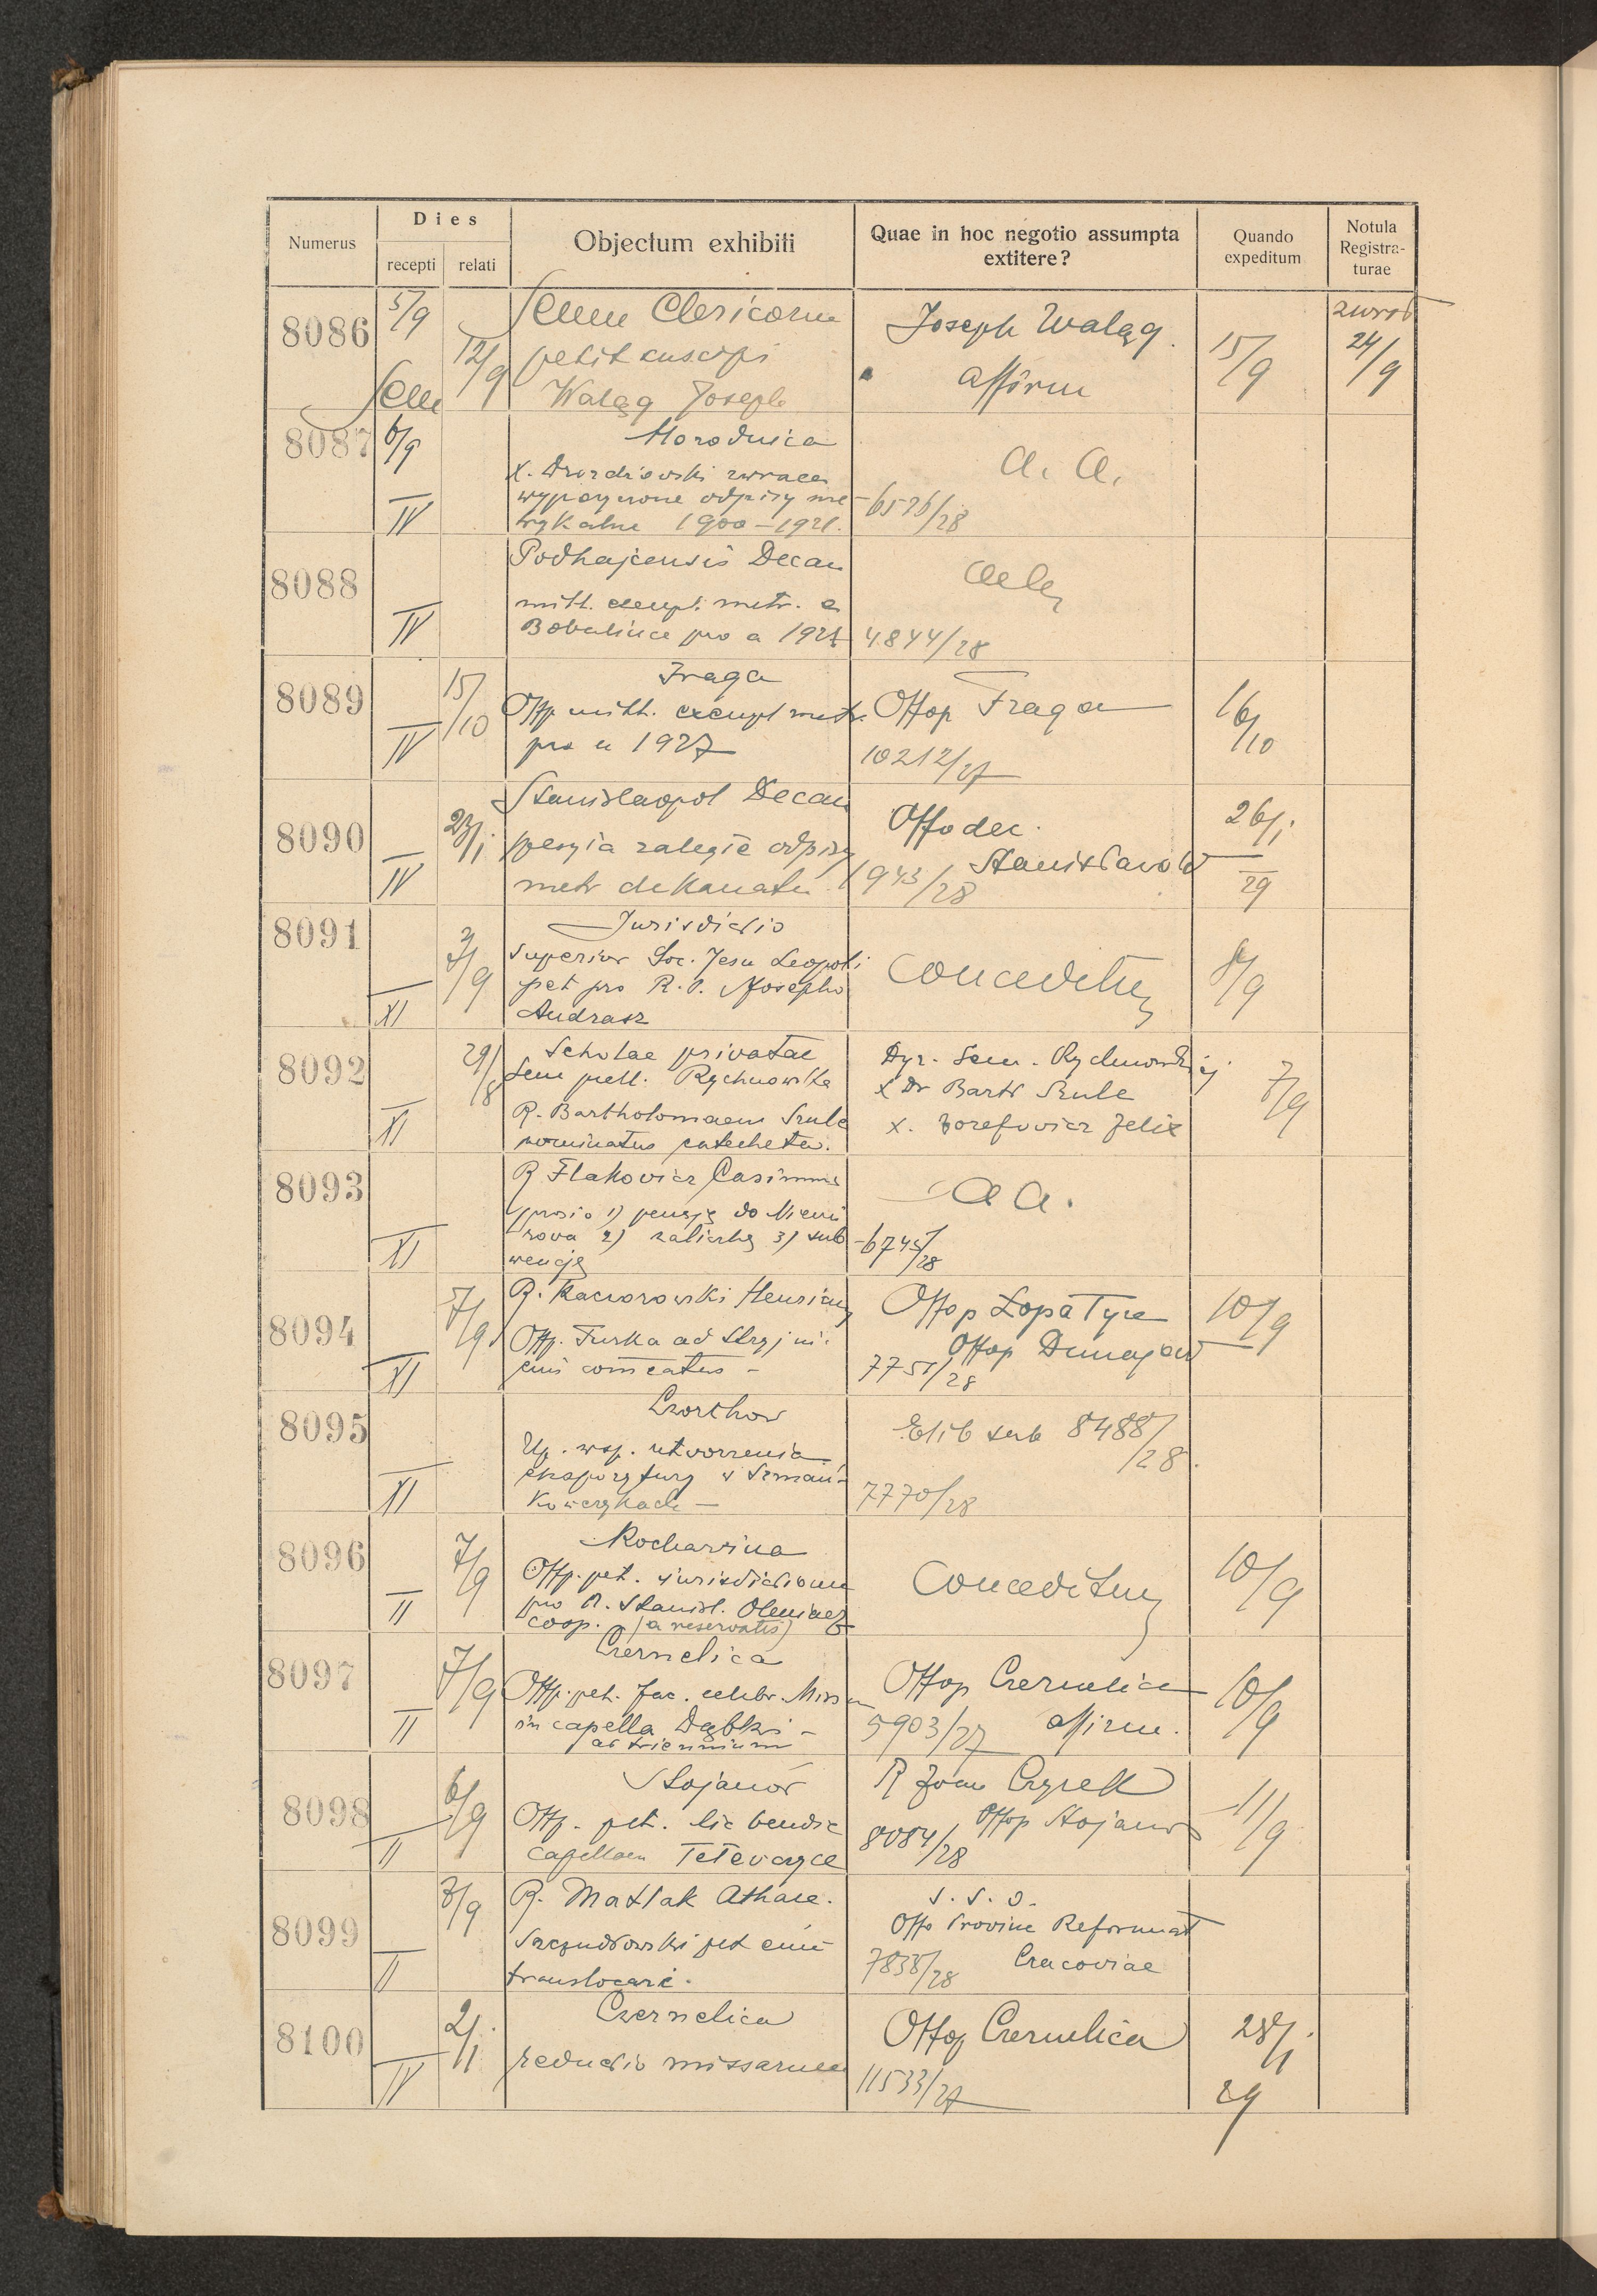 Numerus
Dies
recepti relati
Objectum exhibiti
Quae in hoc negotio assumpta extitere?
Quando expeditum
Notula Registra-turae
8086 5/9 12/9
Clericorum
petit
Walęg Joseph
Joseph Walęg.
affirm
15/9
zwrot
24/9
8087 6/9 IV
Horodnica
zwraca
wypożyczone odpisy me-
trykalne 1900-1921.
a. a.
6526/28
8088 IV
Podhajcensis Decan
mitt. exempl. metr. e
pro a 1927
4844/28
8089 IV 15/10
Fraga
Offp. mitt. exempl metr.
pro a 1927
Offop Fraga
10212/27
16/10
8090 IV 23/1
Stanislaopol Decan
odpisy
metr dekanatu
Offo dec.
Stanisławów
1943/28
26/1 29
8091 XI 7/9
Jurisdictio
Superior Soc. Jesu Leopoli
pet pro R. P. Josepho
Andrasz
Conceditur
8/9
8092 XI 29/8
Scholae privatae
Sem puell. Rychnowska
R. Bartholomaeus Szulc
nominatus catecheta.
Dyr. Sem. Rychnowskiej
x Dr Bartł Szulc
x. Józefowicz Felix
7/9
8093 XI
R Flakovicz Casimirus
prosi o 1) pensję do Niemi
rowa 2) zaliczkę 3) sub
wencję
a a.
6745/28
8094 XI 7/9
R. Kaczorowski Henricus
Offp. Turka ad Stryj
Offop Łopatyn
Offop Dunajów
7751/28
10/9
8095 XI
Czortków
Up. wsp. utworzenia
ekspozytury w Szmań-
kowczykach -
sub 8488/28.
7770/28
8096 II 7/9
Kochawina
Offp. pet. jurisdictionem
pro R. Stanisl.
coop. (a reservatis)
Conceditur
10/9
8097 II 7/9
Czernelica
Offp. pet. fac. celebr. Miss
in capella Dąbki -
ad triennium
Offop Czernelica
5903/27 affirm.
10/9
8098 II 6/9
Stojanów
Offp. pet. lic bened
capellam Tetewczyce
R Joan Czyrek
Offop Stojanów
8084/28
11/9
8099 II 7/9
R. Matlak Athan.
pet
translocari.
Offo Provinc Reformat
7838/28 Cracoviae
8100 IV 2/1
Czernelica
reductio missarum
Offop Czernelica
11533/27
28/1
29